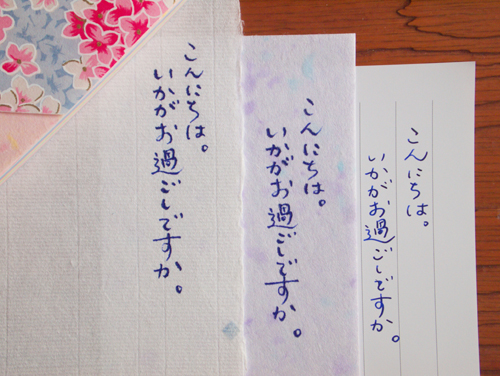 こんにちは。
いかがお過ごしですか。
こんにちは。
いかがお過ごしですか。
こんにちは。
いかがお過ごしですか。